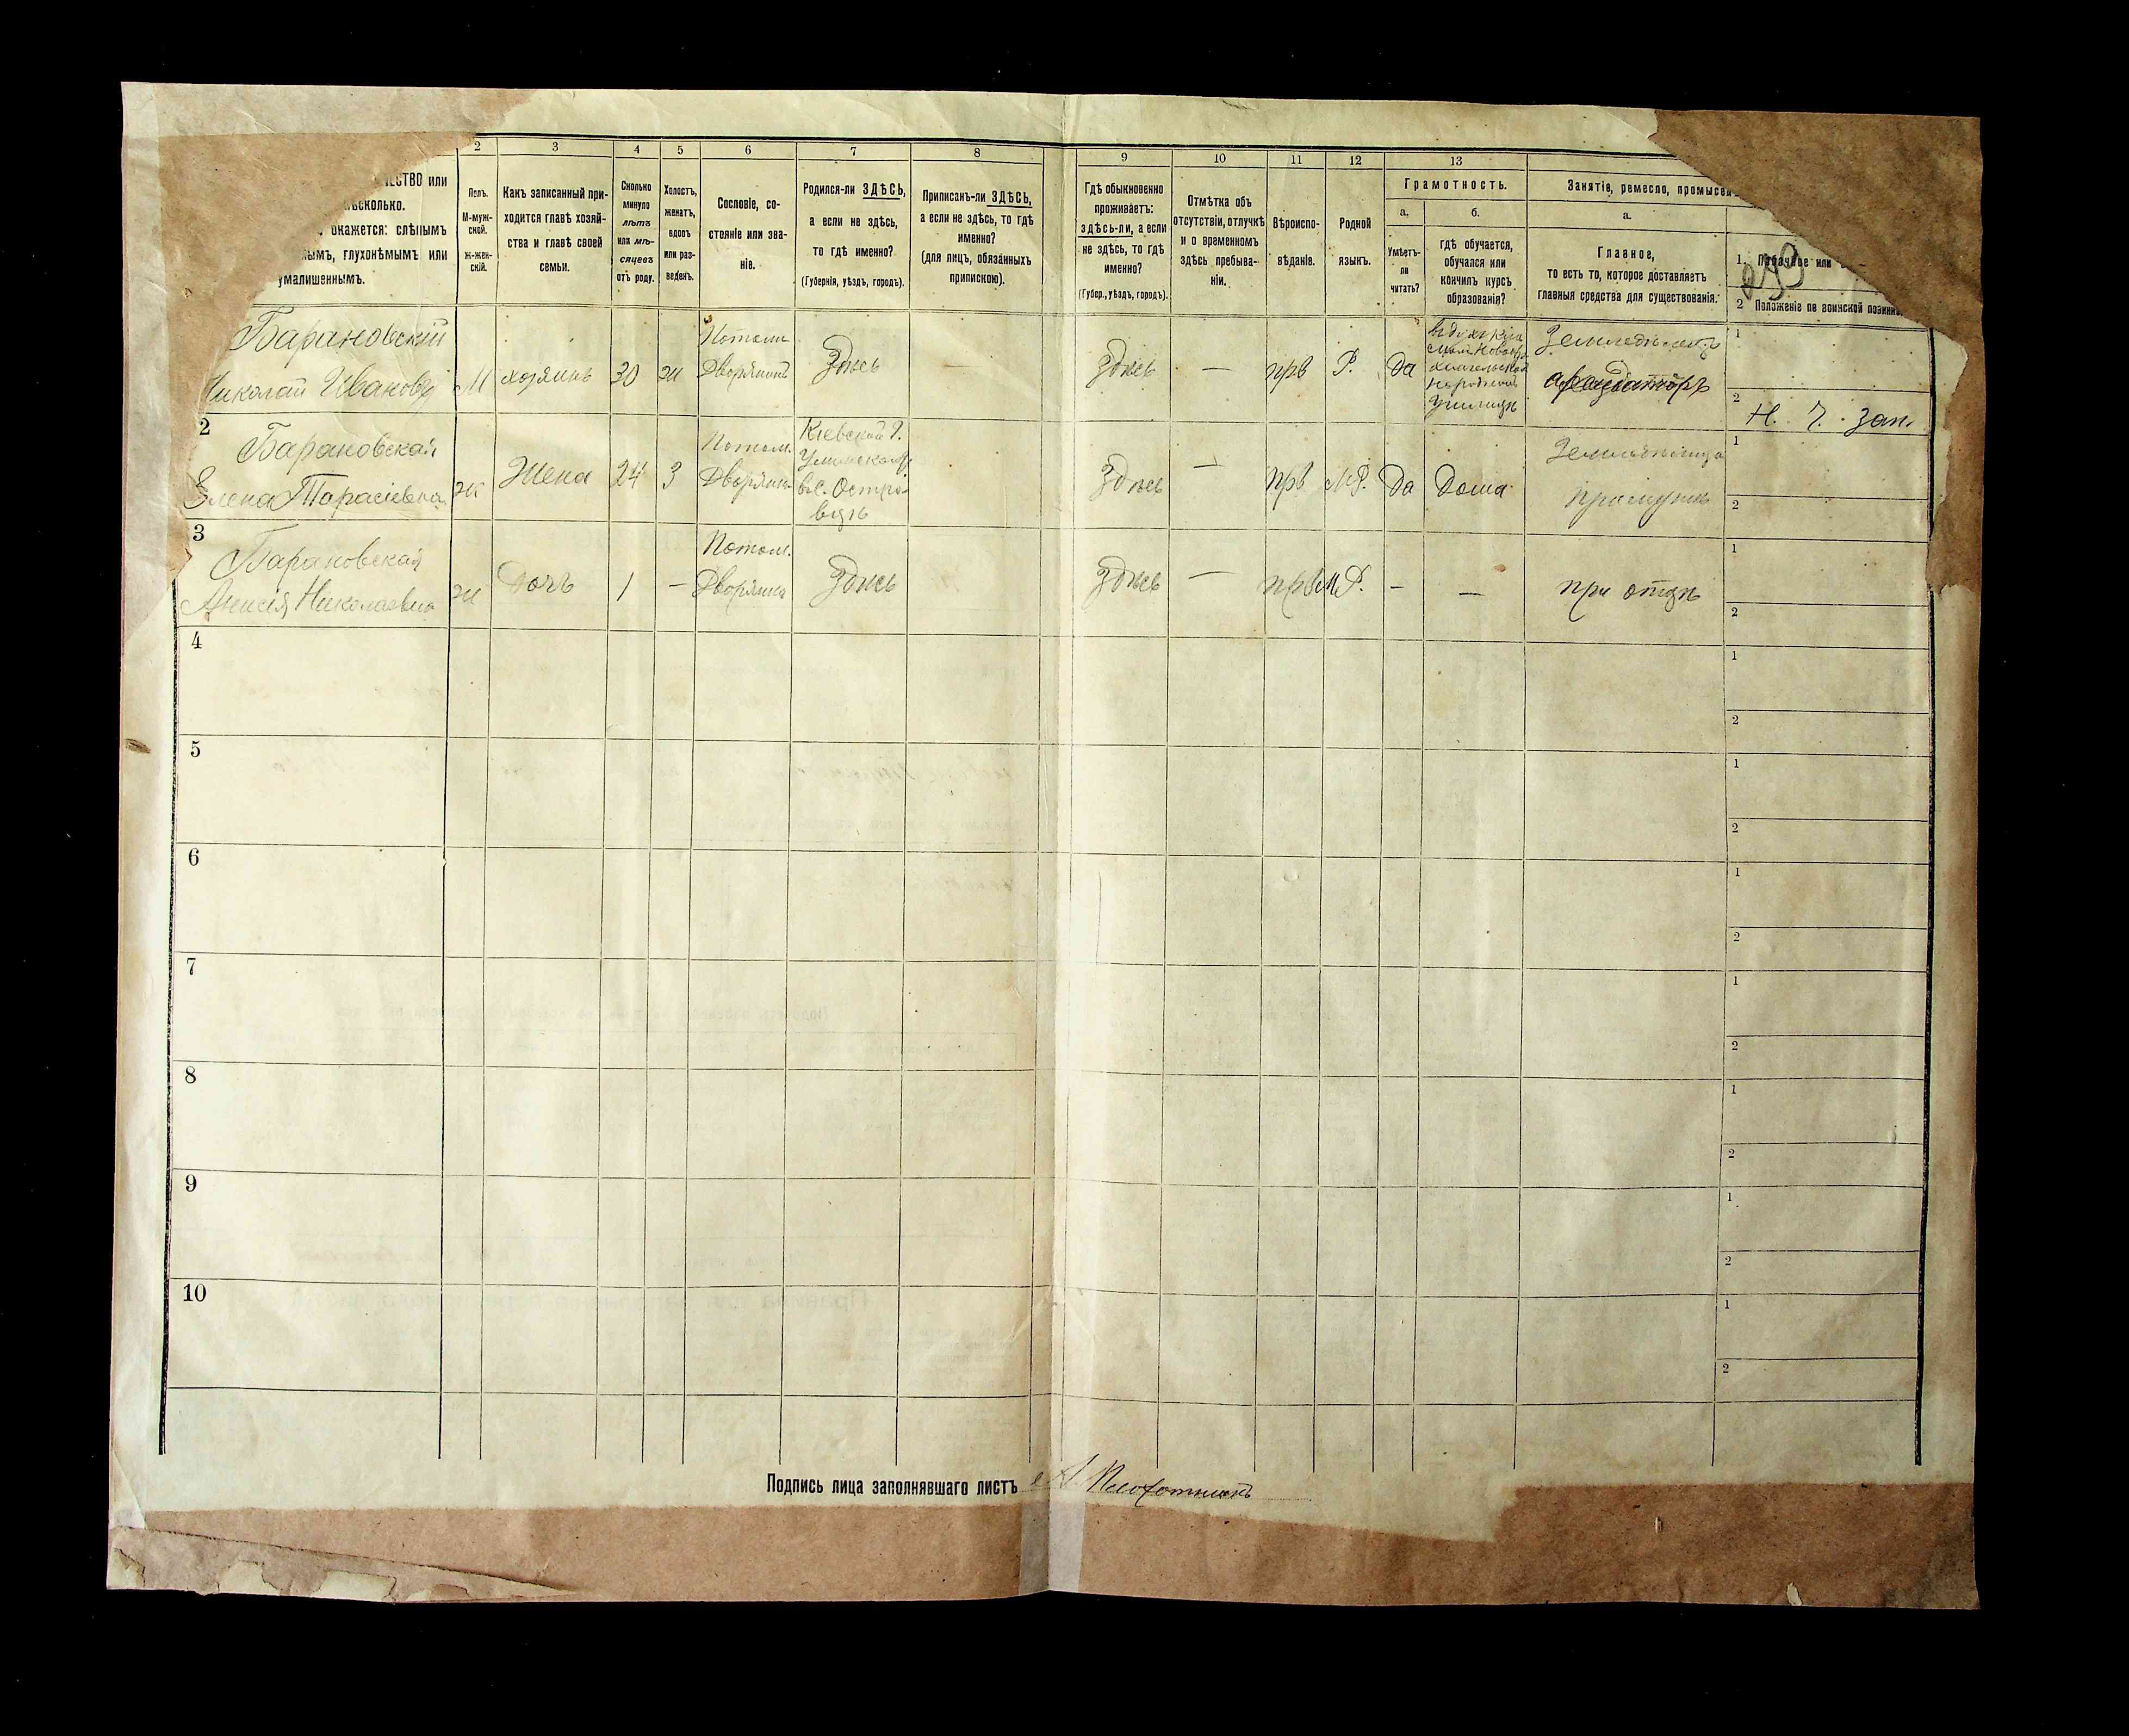 2
3
4
5
6
7
8
9
10
11
12
13
ЕСТВО или
ѣсколько.
окажется: слѣпымъ
ымъ, глухонѣмымъ или
умалишеннымъ.
Полъ.
М-муж-
ской.
ж-жен-
скій.
Какъ записанный при-
ходится главѣ хозяй-
ства и главѣ своей
семьи.
Сколько
минуло
лѣтъ
или мѣ-
сяцевъ
отъ роду.
Холостъ,
женатъ,
вдовъ
или раз-
веденъ.
Сословіе, со-
стояніе или зва-
ніе.
Родился-ли ЗДѢСЬ,
а если не здѣсь,
то гдѣ именно?
(Губернія, уѣздъ, городъ).
Приписанъ-ли ЗДѢСЬ,
а если не здѣсь, то гдѣ
именно?
(для лицъ, обязанныхъ
припискою).
Гдѣ обыкновенно
проживаетъ:
здѣсь-ли, а если
не здѣсь, то гдѣ
именно?
(Губер., уѣздъ, городъ).
Отмѣтка объ
отсутствіи, отлучкѣ
и о временномъ
здѣсь пребыва-
ніи.
Вѣроиспо-
вѣданіе.
Родной
языкъ.
Грамотность.
а.
Умѣетъ-
ли
читать?
б.
гдѣ обучается,
обучался или
кончилъ курсъ
образованія?
Занятіе, ремесло, промысел
а.
Главное,
то есть то, которое доставляетъ
главныя средства для существованія.
1. Побочное или
2 Положеніе по воинской повинн
Барановскій
Николай Ивановъ
М
хозяинъ
30
ж
Потом.
Дворянинъ
Здѣсь
Здѣсь
—
прв
Р.
да
народномъ
училищѣ
Земледѣлецъ
арендаторъ
1
2
Н. Ч. зап.
2
Барановская
Елена Тарасіевна
ж
Жена
24
З
Потом.
Дворянка
Кіевской г.
Уманского у.
въ с. Остро-
вцѣ
Здѣсь
—
прв
М.Р.
Да
Дома
при мужѣ
1
2
3
Барановская
Анисія Николаевна
ж
Дочь
1
—
Потом.
Дворянка
Здѣсь
Здѣсь
—
прв
М.Р.
—
—
при отцѣ
1
2
4
1
2
5
1
2
6
1
2
7
1
2
8
1
2
9
1
2
10
1
2
Подпись лица заполнявшаго листъ